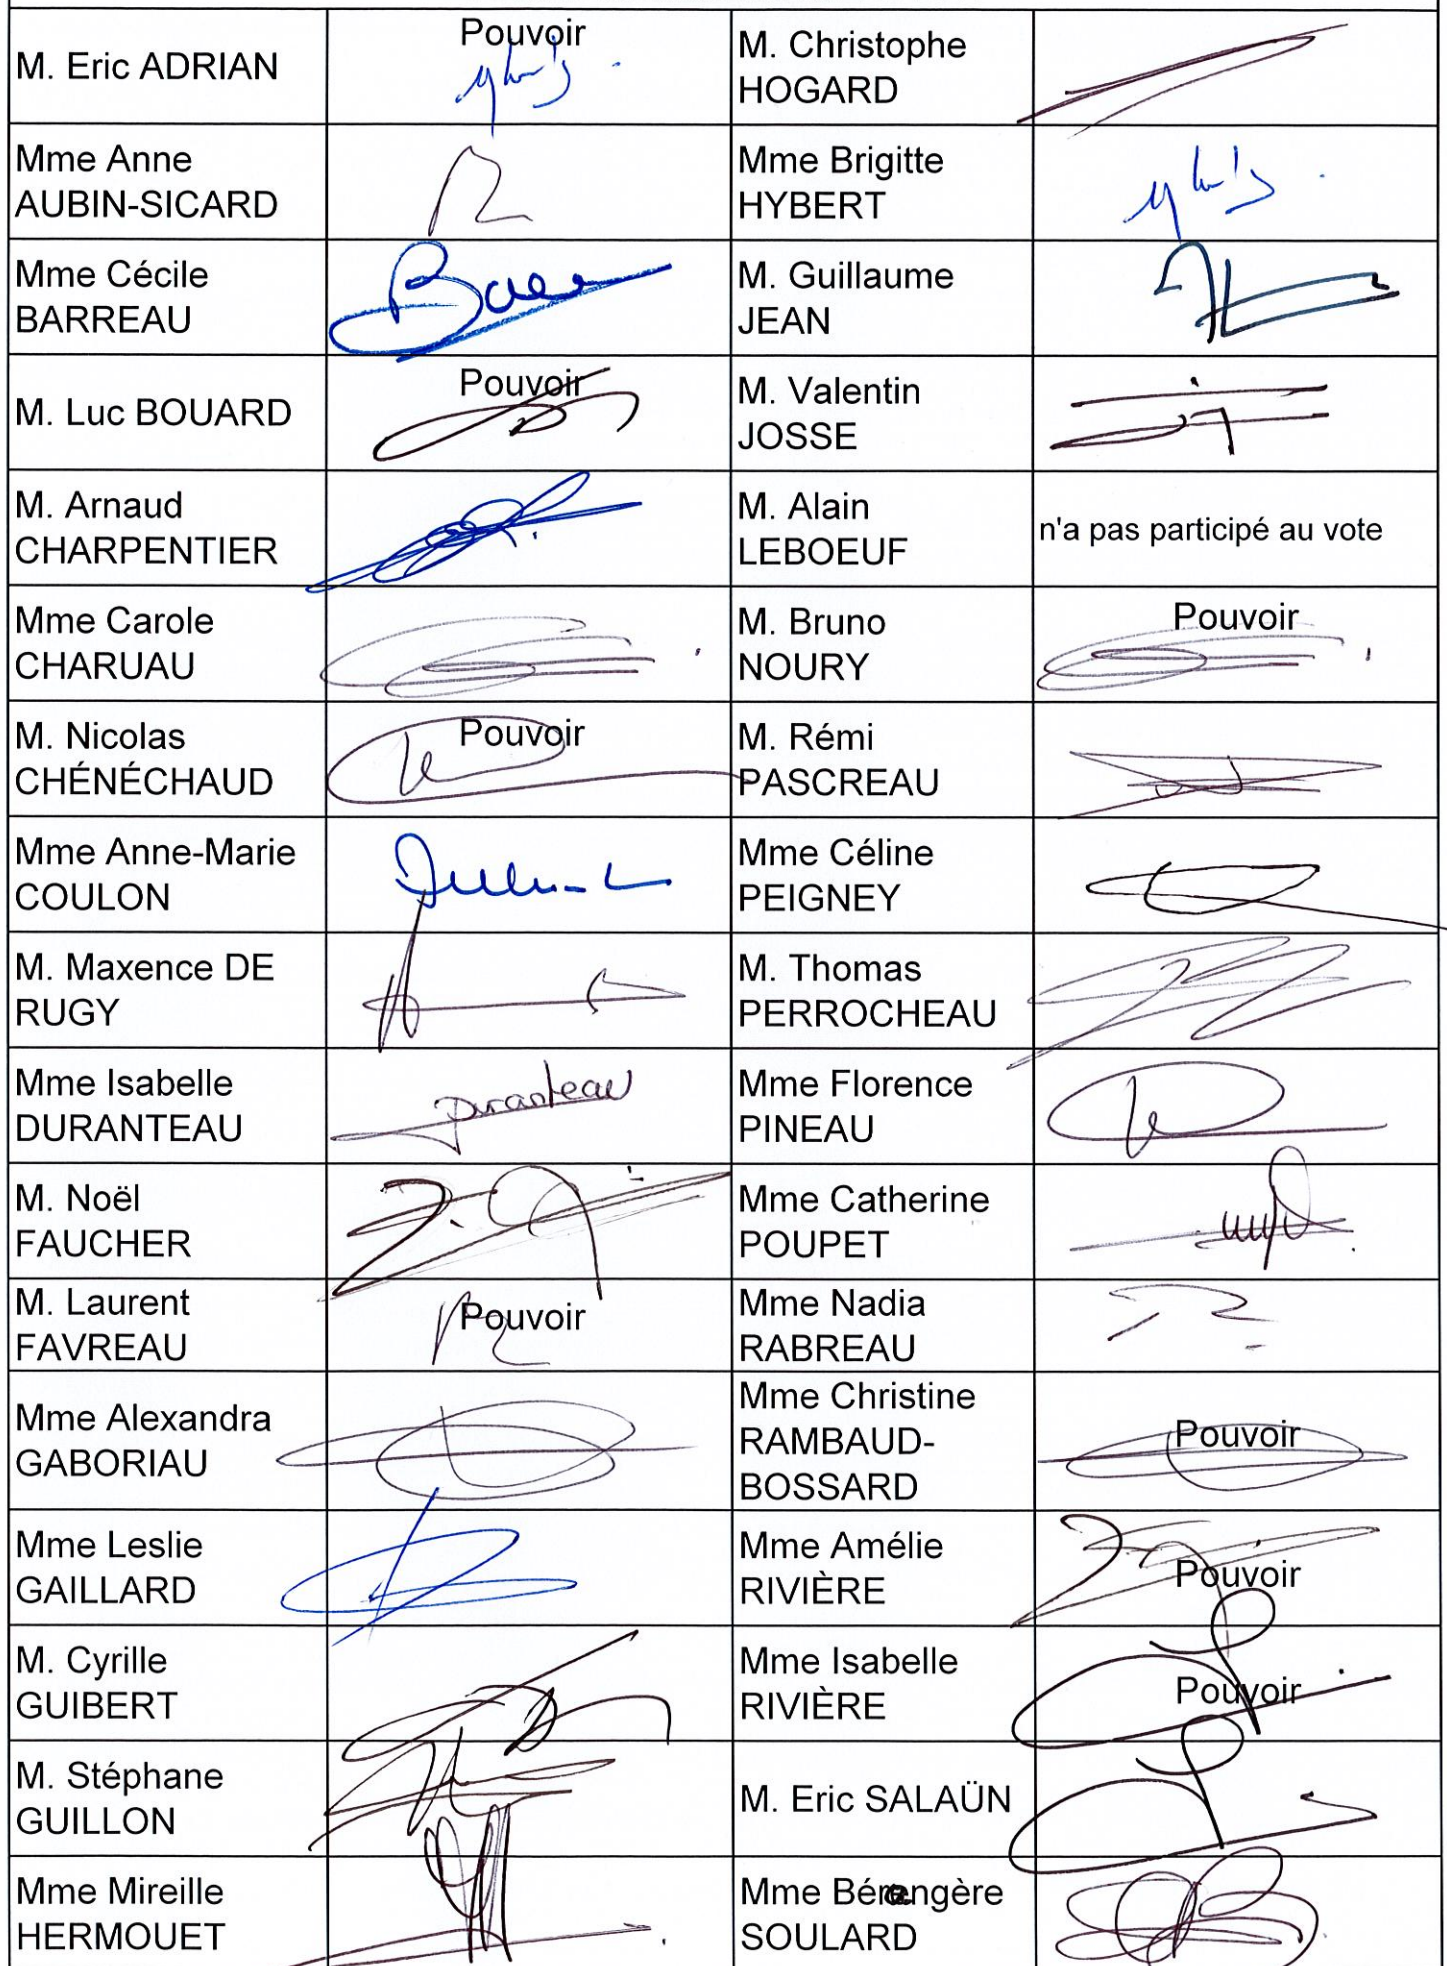 M. Eric ADRIAN
Pouvoir
M. Christophe
HOGARD
Mme Anne
AUBIN-SICARD
Mme Brigitte
HYBERT
Mme Cécile
BARREAU
M. Guillaume
JEAN
M. Luc BOUARD
Pouvoir
M. Valentin
JOSSE
M. Arnaud
CHARPENTIER
M. Alain
LEBOEUF
n'a pas participé au vote
Mme Carole
CHARUAU
M. Bruno
NOURY
Pouvoir
M. Nicolas
CHÉNÉCHAUD
Pouvoir
M. Rémi
PASCREAU
Mme Anne-Marie
COULON
Mme Céline
PEIGNEY
M. Maxence DE
RUGY
M. Thomas
PERROCHEAU
Mme Isabelle
DURANTEAU
Duranteau
Mme Florence
PINEAU
M. Noël
FAUCHER
Mme Catherine
POUPET
M. Laurent
FAVREAU
Pouvoir
Mme Nadia
RABREAU
Mme Alexandra
GABORIAU
Mme Christine
RAMBAUD-
BOSSARD
Pouvoir
Mme Leslie
GAILLARD
Mme Amélie
RIVIÈRE
Pouvoir
M. Cyrille
GUIBERT
Mme Isabelle
RIVIÈRE
Pouvoir
M. Stéphane
GUILLON
M. Eric SALAÜN
Mme Mireille
HERMOUET
Mme Bérangère
SOULARD